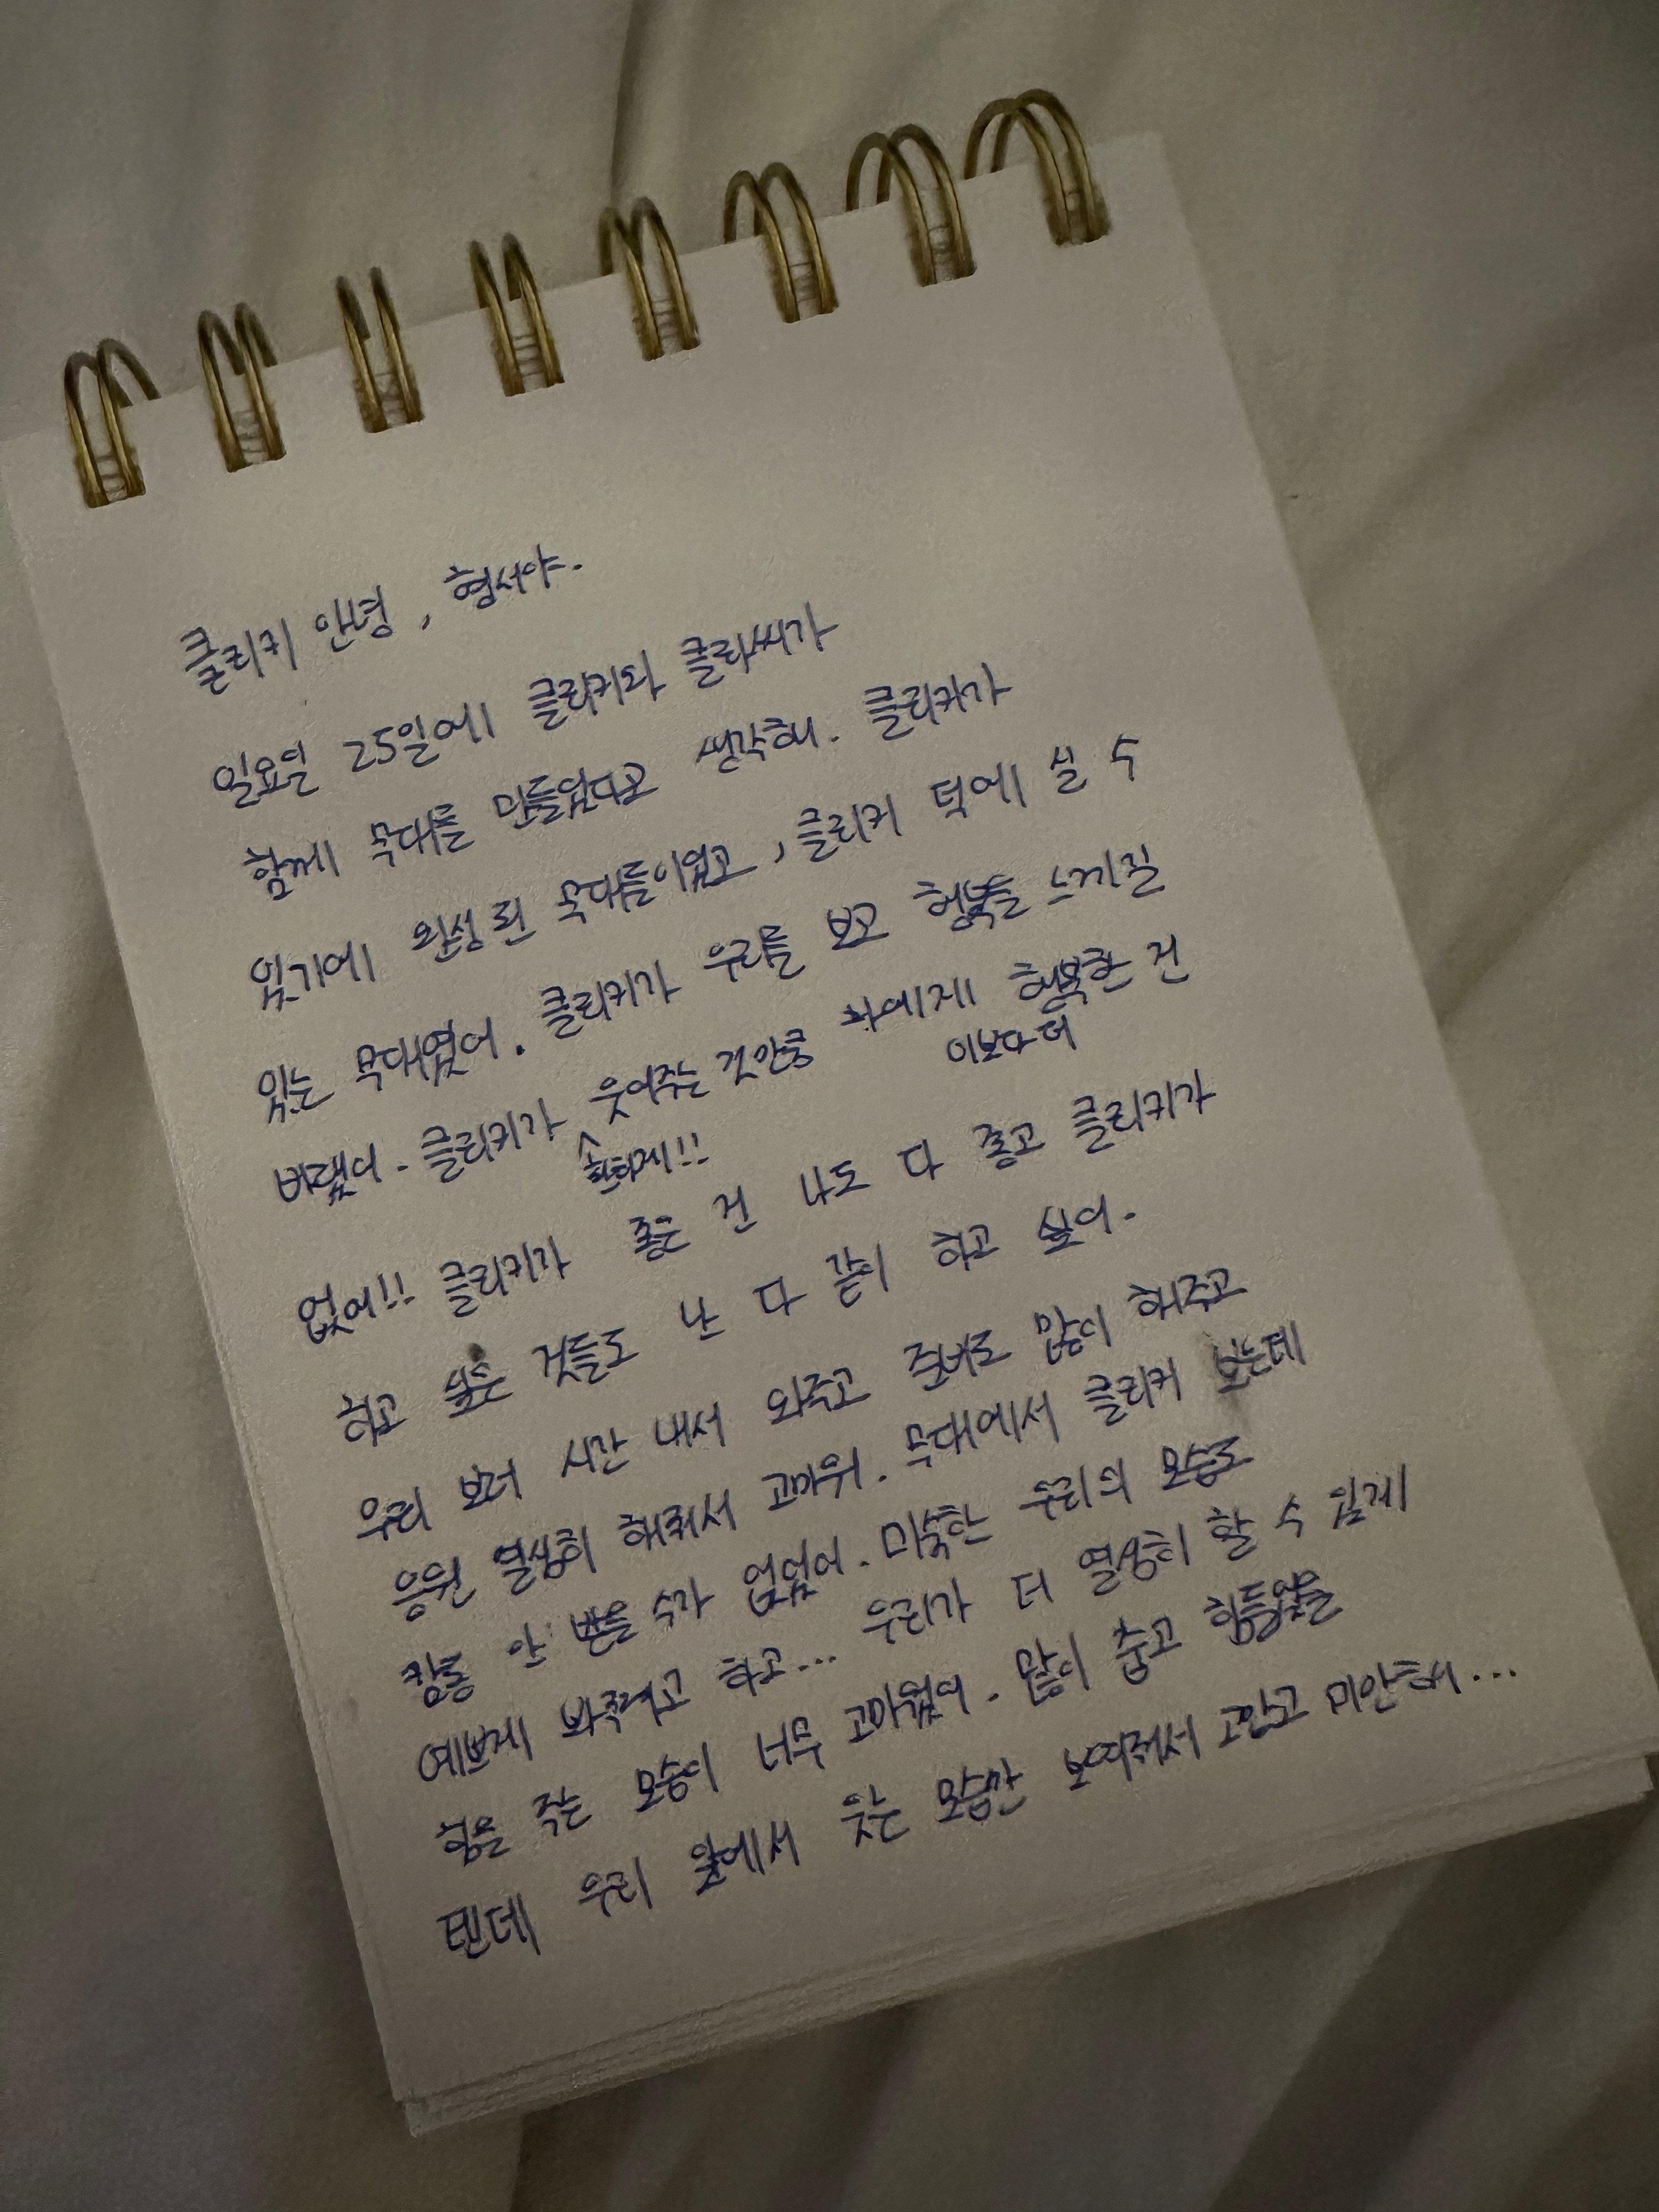 클리키 안녕, 형서야.
일요일 25일에 클리키와 클라씨가
함께 무대를 만들었다고 생각해. 클리키가
있기에 완성된 무대들이였고, 클리키 덕에 설 수
있는 무대였어. 클리키가 우리를 보고 행복을 느끼길
바랬어. 클리키가 웃어주는 것만큼 나에게 행복한 건
환하게!! 이보다 더
없어!! 클리키가 좋은 건 나도 다 좋고 클리키가
하고 싶은 것들도 난 다 같이 하고 싶어.
우리 보러 시간 내서 와주고 준비도 많이 해주고
응원 열심히 해줘서 고마워. 무대에서 클리키 보는데
감동 안 받을 수가 없었어. 미숙한 우리의 모습도
예쁘게 봐주려고 하고... 우리가 더 열심히 할 수 있게
힘을 주는 모습이 너무 고마웠어. 많이 춥고 힘들었을
텐데 우리 앞에서 웃는 모습만 보여줘서 고맙고 미안해...